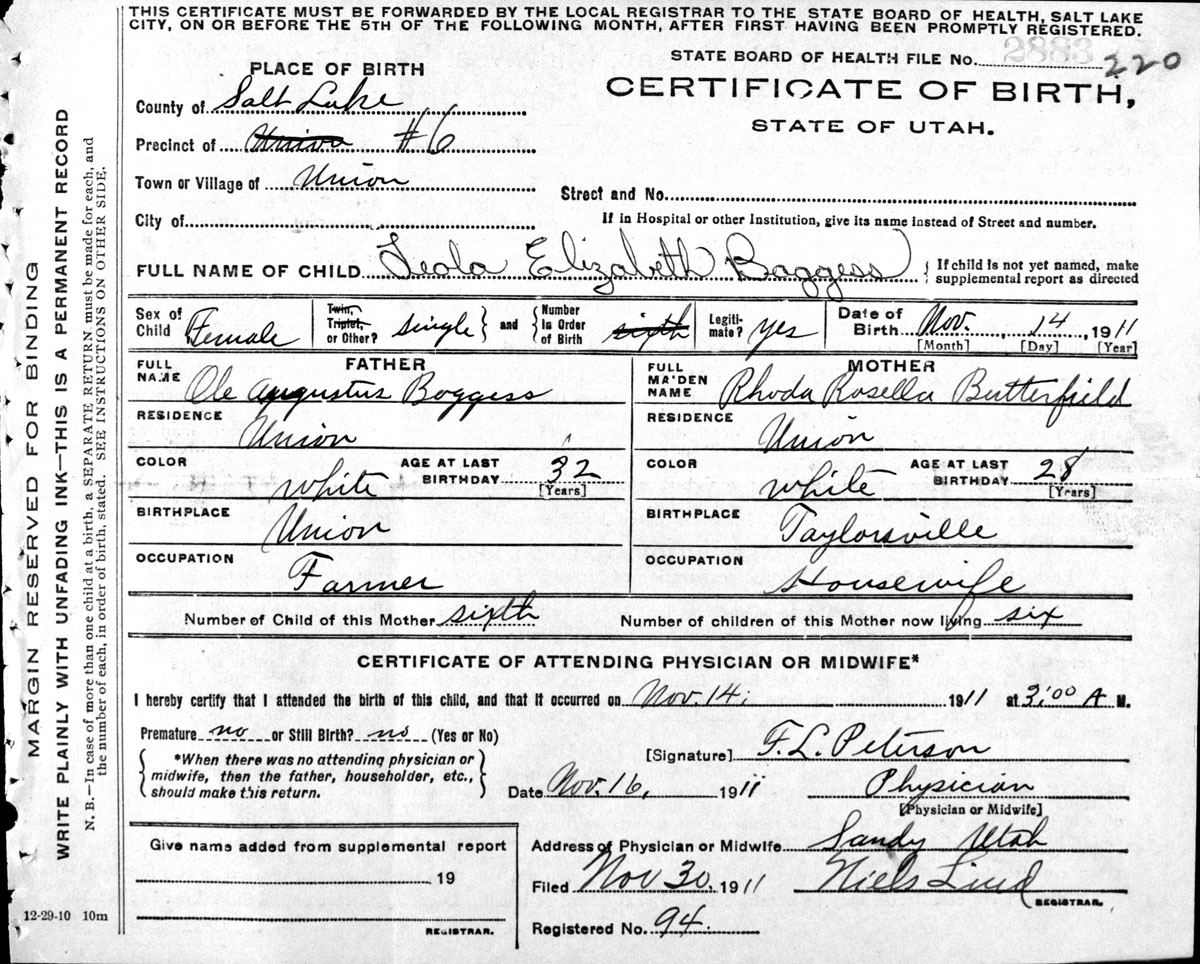 THIS CERTIFICATE MUST BE FORWARDED BY THE LOCAL REGISTRAR TO THE STATE BOARD OF HEALTH, SALT LAKE
CITY, ON OR BEFORE THE 5TH OF THE FOLLOWING MONTH, AFTER FIRST HAVING BEEN PROMPTLY REGISTERED.
STATE BOARD OF HEALTH FILE No. 2883 220
PLACE OF BIRTH
CERTIFICATE OF BIRTH,
STATE OF UTAH.
County of Salt Lake
Precinct of Union #6
Town or Village of Union
Street and No.
City of
If in Hospital or other Institution, give its name instead of Street and number.
FULL NAME OF CHILD Leola Elizabeth Boggess { If child is not yet named, make
supplemental report as directed
Sex of Child Female Twin, Triplet, or Other? single } and { Number In Order of Birth sixth Legiti-mate? yes Date of Birth Nov. 14 1911
[Month] [Day] [Year]
FATHER
FULL NAME Ole Augustus Boggess
RESIDENCE Union
COLOR white AGE AT LAST BIRTHDAY 32 [Years]
BIRTHPLACE Union
OCCUPATION Farmer
MOTHER
FULL MAIDEN NAME Rhoda Rosella Butterfield
RESIDENCE Union
COLOR white AGE AT LAST BIRTHDAY 28 [Years]
BIRTHPLACE Taylorsville
OCCUPATION Housewife
Number of Child of this Mother sixth Number of children of this Mother now living six
CERTIFICATE OF ATTENDING PHYSICIAN OR MIDWIFE*
I hereby certify that I attended the birth of this child, and that it occurred on Nov. 14, 1911 at 3:00 A M.
Premature no or Still Birth? no (Yes or No)
{ *When there was no attending physician or
midwife, then the father, householder, etc.,
should make this return. }
[Signature] F. L. Peterson
Date Nov. 16, 1911 Physician
[Physician or Midwife]
Give name added from supplemental report
19
REGISTRAR.
Address of Physician or Midwife Sandy Utah
Filed Nov 30, 1911 Niels Lind
REGISTRAR.
Registered No. 94.
12-29-10 10m
MARGIN RESERVED FOR BINDING
WRITE PLAINLY WITH UNFADING INK—THIS IS A PERMANENT RECORD
N. B.—In case of more than one child at a birth, a SEPARATE RETURN must be made for each, and
the number of each, in order of birth, stated. SEE INSTRUCTIONS ON OTHER SIDE.